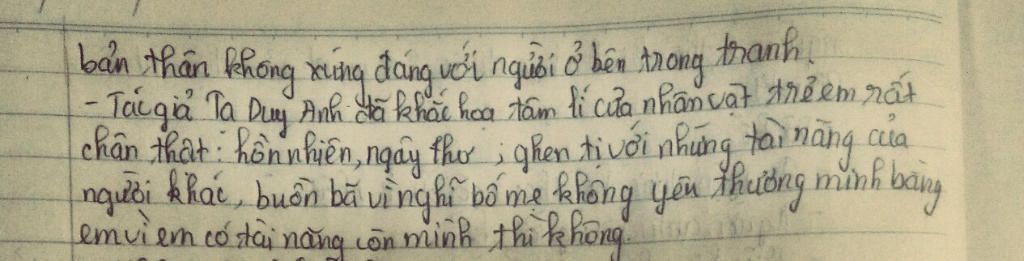 bản thân không xứng đáng với người ở bên trong tranh.
- Tác giả Tạ Duy Anh đã khắc hoạ tâm lí của nhân vật trẻ em rất
chân thật: hồn nhiên, ngây thơ; ghen tị với những tài năng của
người khác, buồn bã vì nghĩ bố mẹ không yêu thương mình bằng
em vì em có tài năng còn mình thì không.